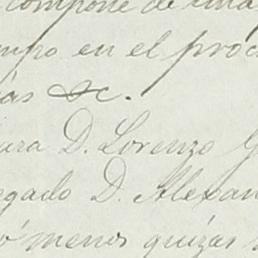 compone de una
mpo en el proc
ás &c.
ara D. Lorenzo G
egado D. Alexan
ó menos quizás